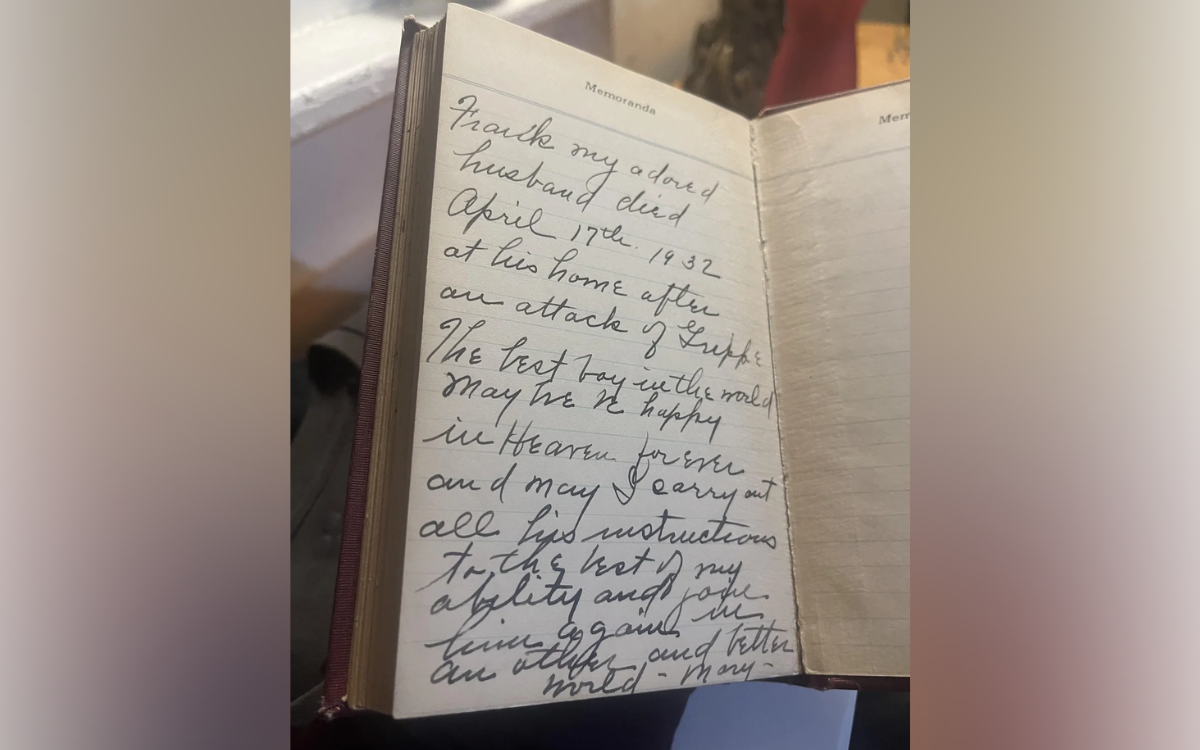 Memoranda
Frank my adored
husband died
April 17th. 1932
at his home after
an attack of Grippe
The best boy in the world
May he be happy
in Heaven forever
and may I carry out
all his instructions
to the best of my
ability and join
him again in
an other and better
world - Mary -
Mem